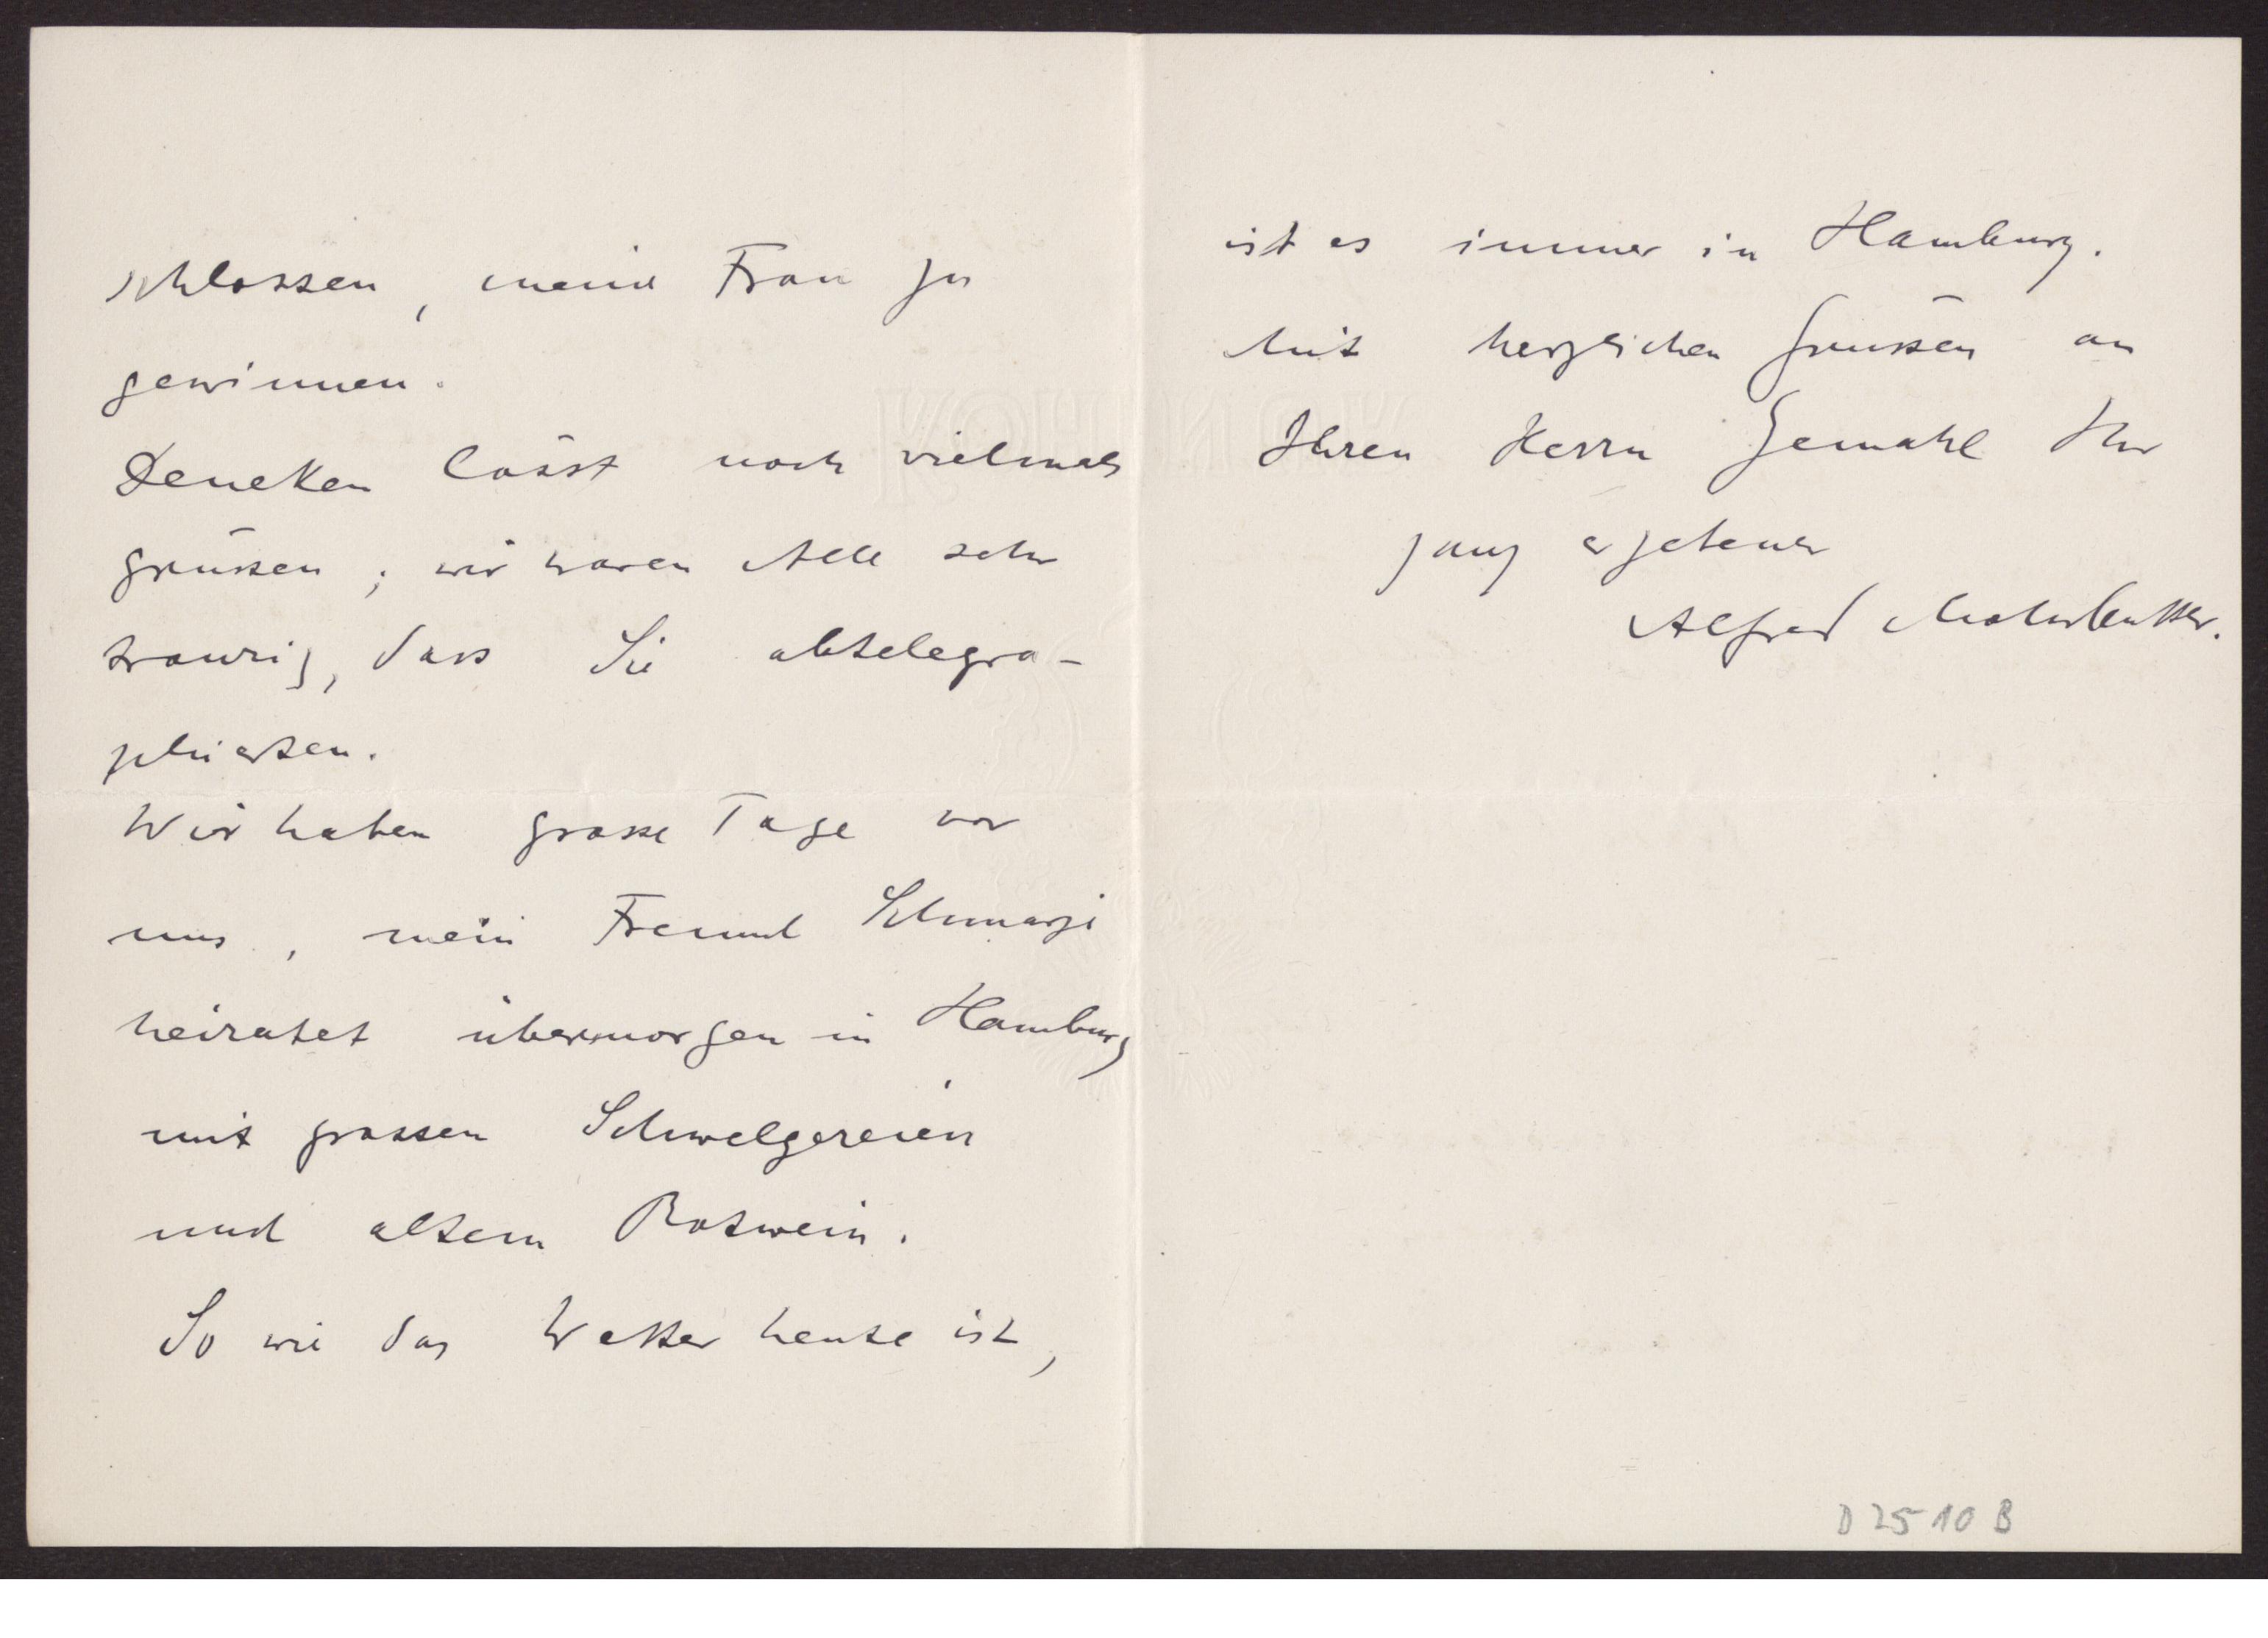 schlossen, meine Frau zu
gewinnen.
Deneken lässt noch vielmals
grüssen; wir waren Alle sehr
traurig, dass Sie abtelegra-
phierten.
Wir haben grosse Tage vor
uns, mein Freund Schmarje
heiratet übermorgen in Hamburg
mit grossen Schwelgereien
und altem Rotwein.
So wie das Wetter heute ist,
ist es immer in Hamburg.
Mit herzlichen Grüssen an
Ihren Herrn Gemahl Ihr
ganz ergebener
Alfred Mohrbutter.
D 25 10 B